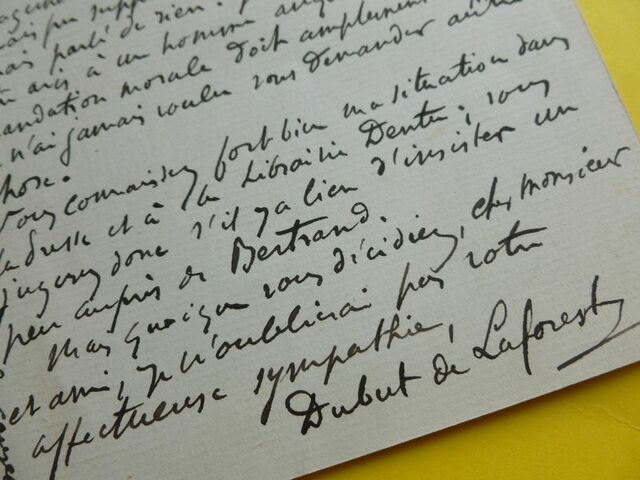 parlé de rien.
à un homme
morale doit amplement
n'ai jamais voulu vous demander autre
chose.
Vous connaissez fort bien ma situation dans
la presse et à la Librairie Dentu; vous
jugerez donc s'il y a lieu d'insister un
peu auprès de Bertrand.
Mais quoique vous décidiez, cher monsieur
et ami, je n'oublierai pas votre
affectueuse sympathie,
Dubut de Laforest